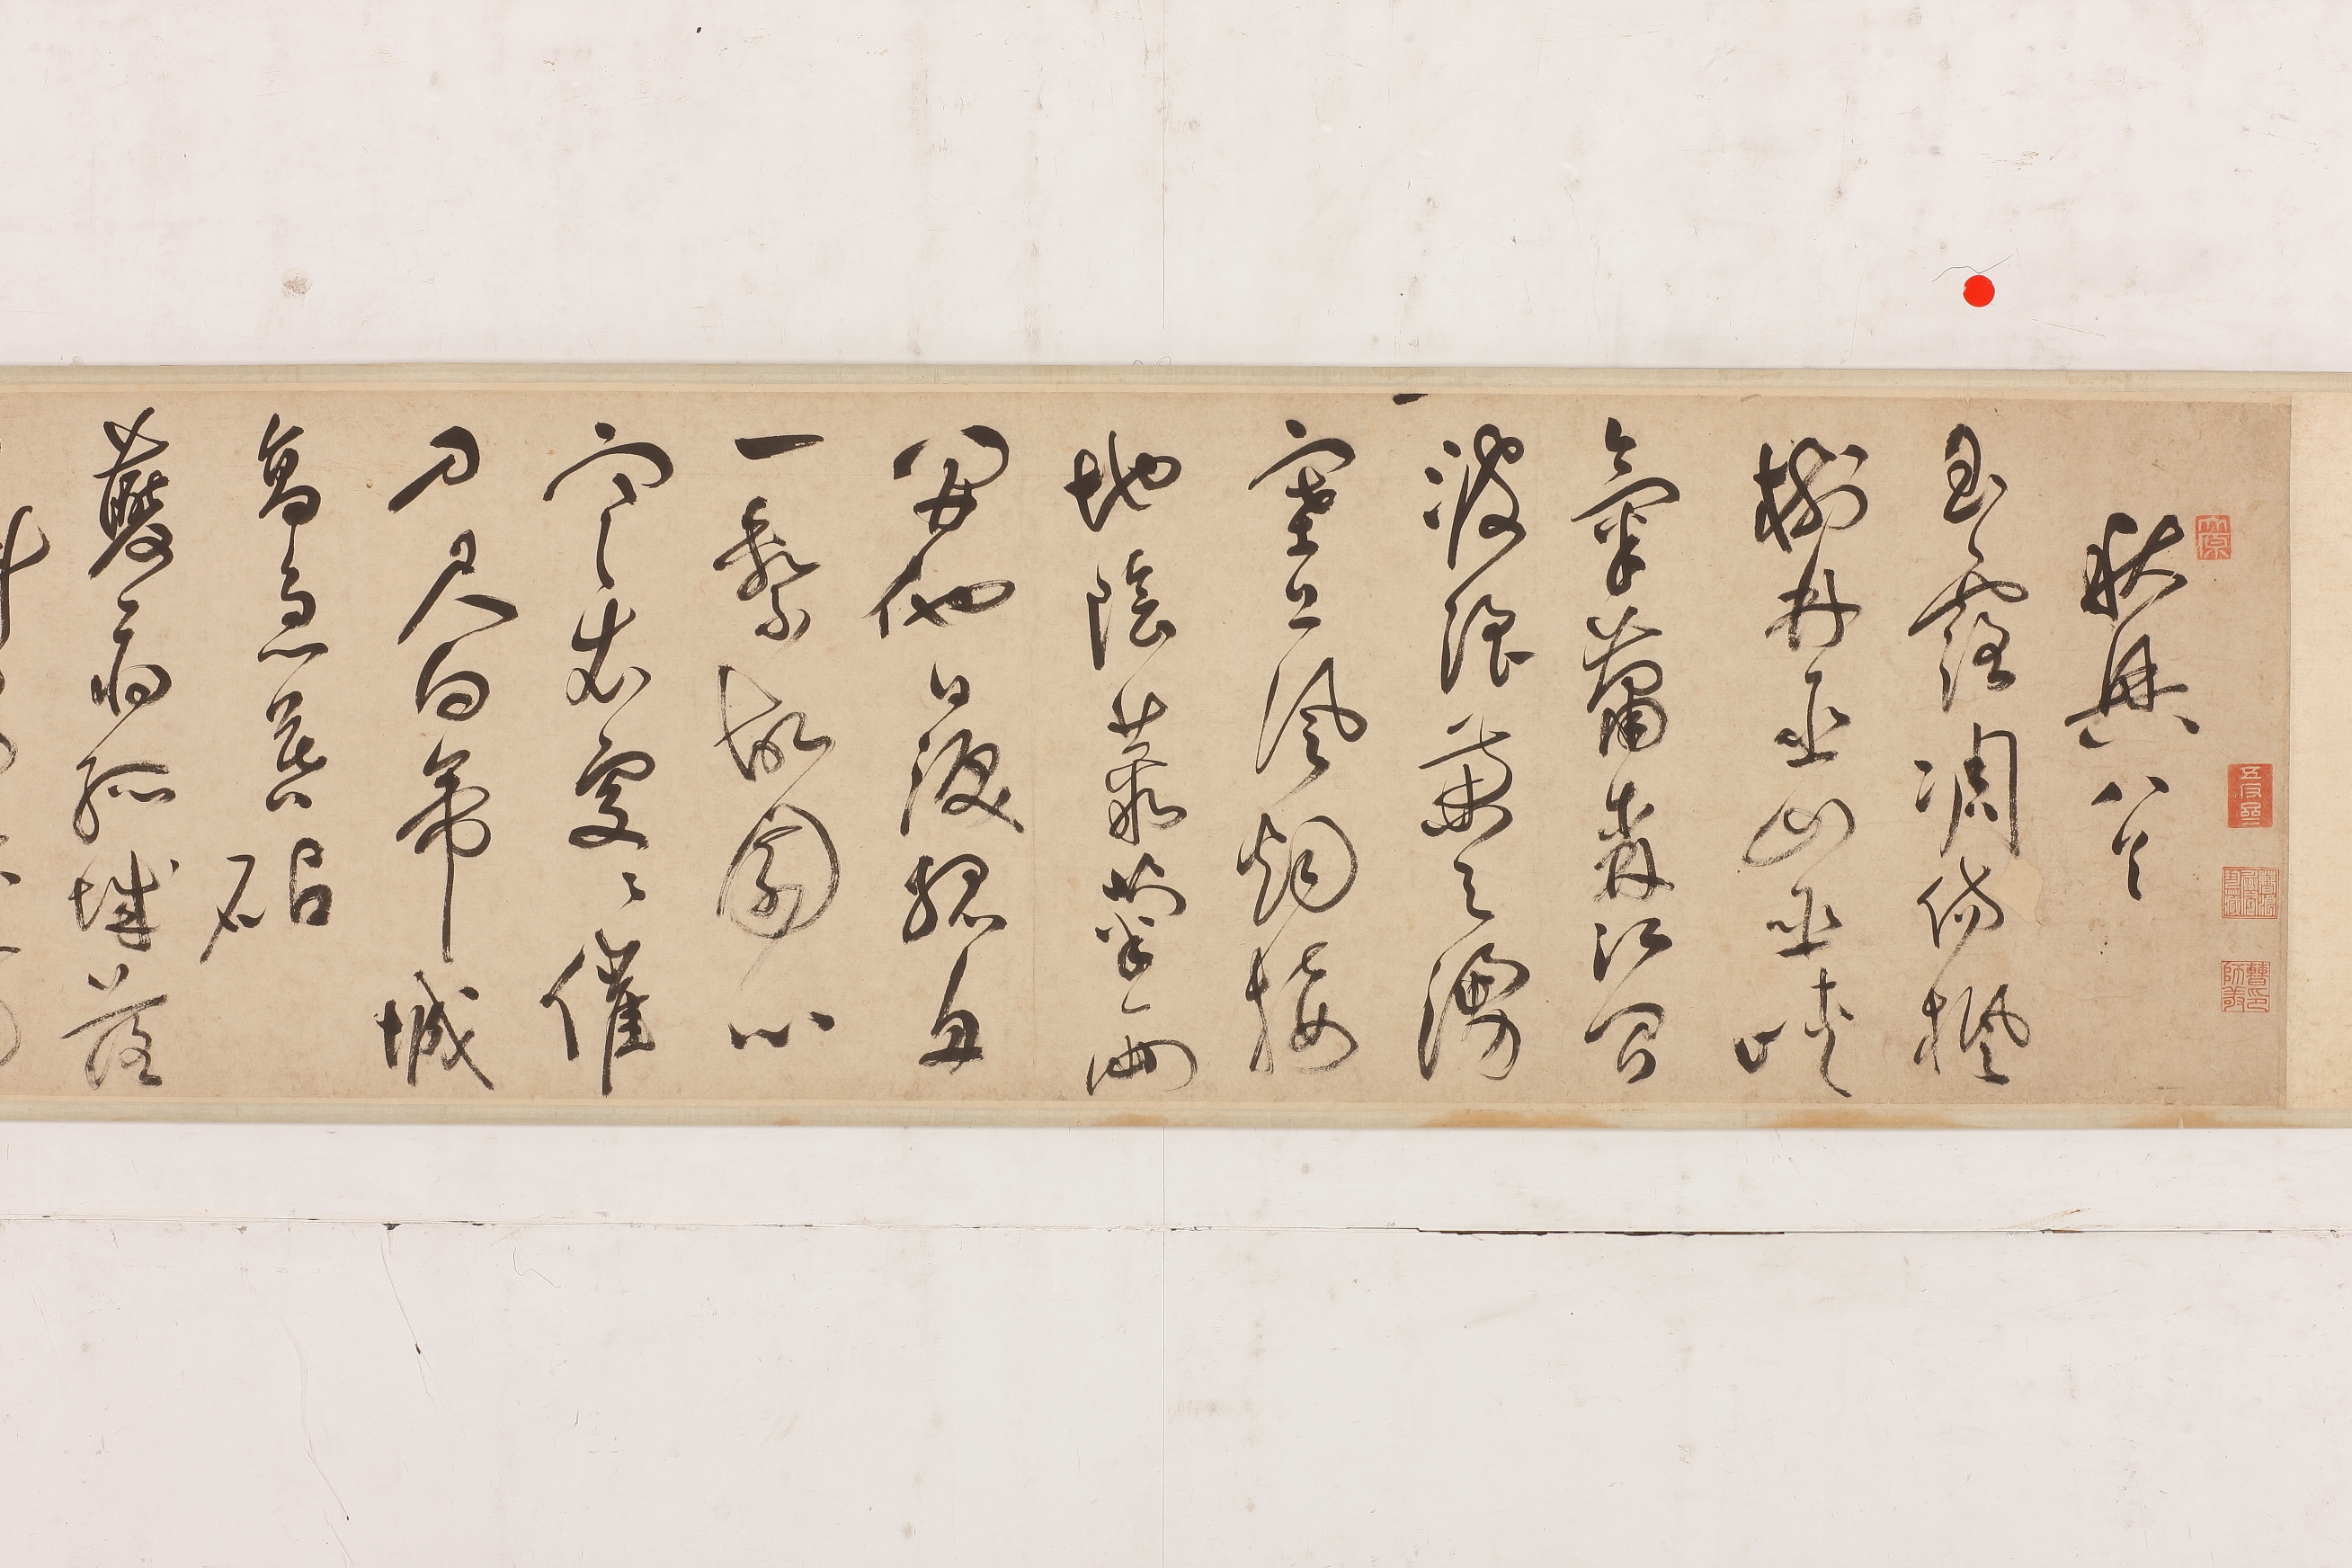 秋興八首
玉露凋傷楓
樹林巫山巫峽
氣蕭森江間
波浪兼天湧
塞上風烟接
地陰叢菊兩
開他日淚孤舟
一繫故園心
寒衣處〻催
刀尺白帝城
高急暮砧
夔府孤城落